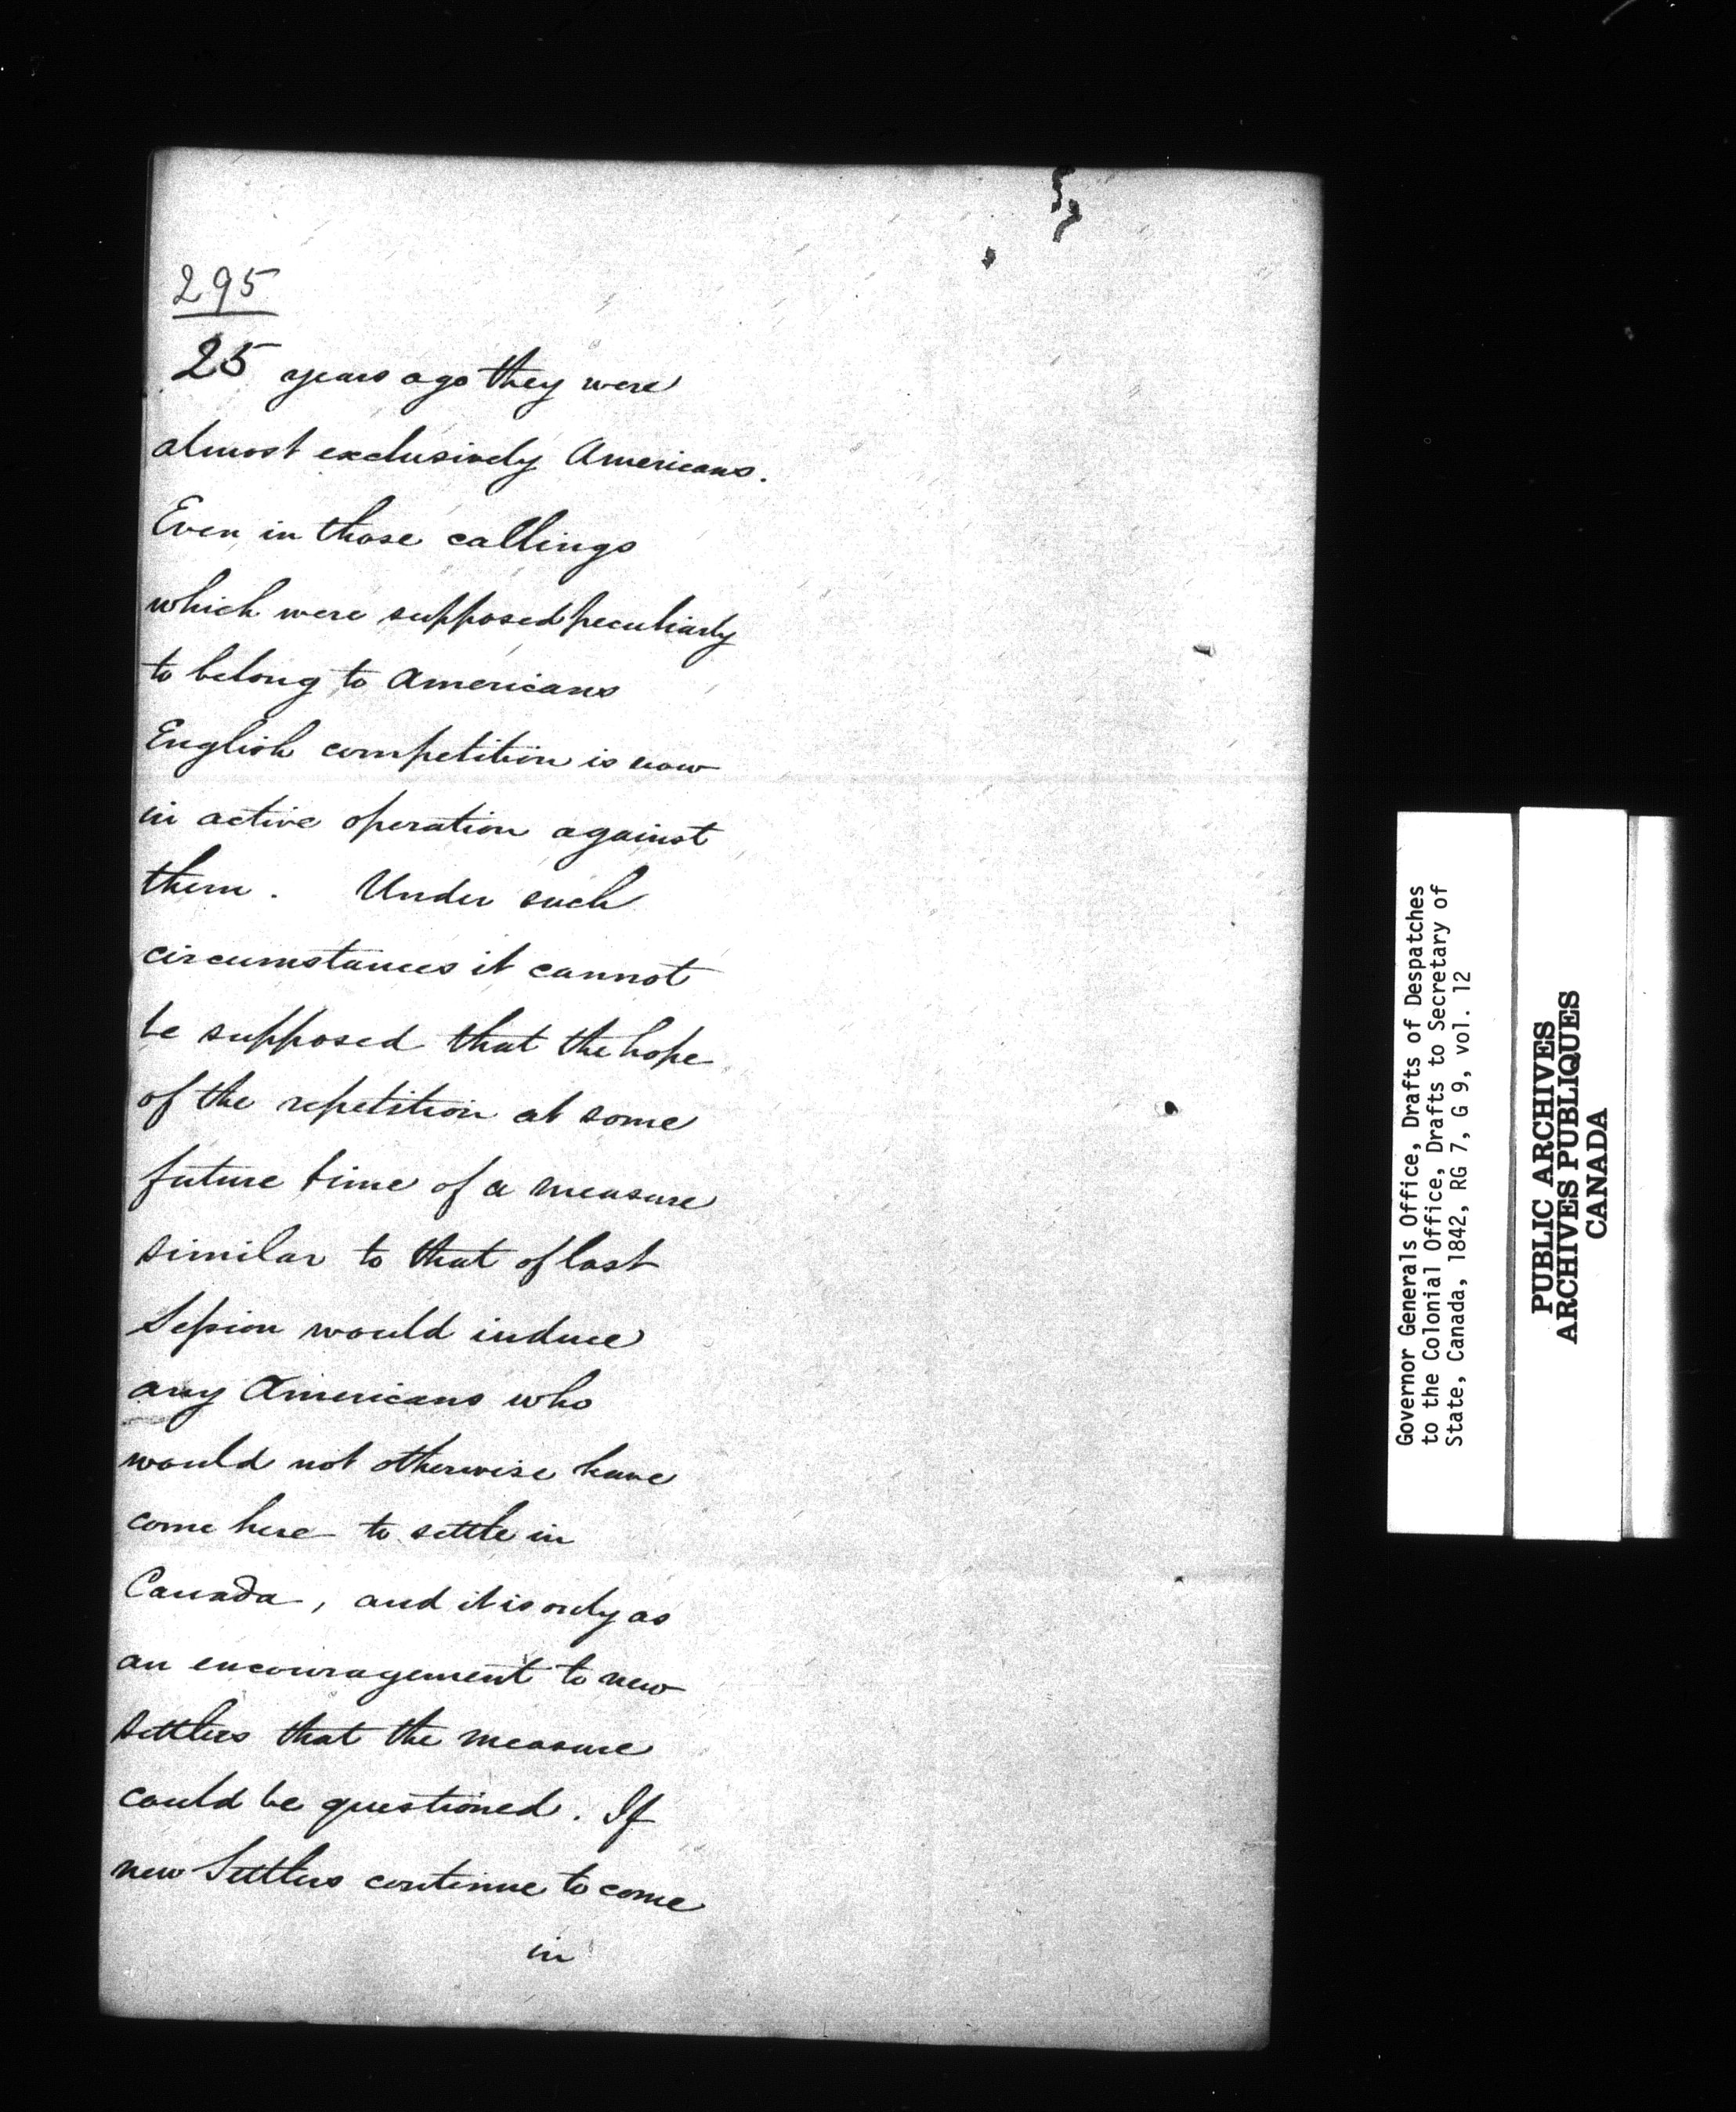 295
25 years ago they were
almost exclusively Americans.
Even in those callings
which were supposed peculiarly
to belong to Americans
English competition is now
in active operation against
them. Under such
circumstances it cannot
be supposed that the hope
of the repetition at some
future time of a measure
similar to that of last
Session would induce
any Americans who
would not otherwise have
come here to settle in
Canada, and it is only as
an encouragement to new
settlers that the measure
could be questioned. If
new Settlers continue to come
in
Governor Generals Office, Drafts of Despatches
to the Colonial Office, Drafts to Secretary of
State, Canada, 1842, RG 7, G 9, vol. 12
PUBLIC ARCHIVES
ARCHIVES PUBLIQUES
CANADA